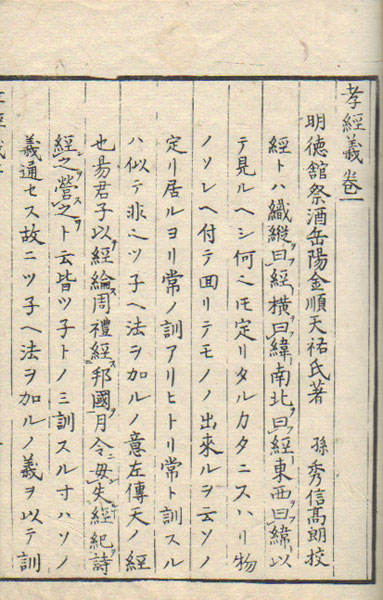 孝經義卷一
明德舘祭酒岳陽金順天祐氏著 孫秀信高朗校
經トハ織縱曰經橫曰緯南北曰經東西曰緯以
テ見ルヘシ何ニモ定リタルカタニスハリ物
ノソレヘ付テ回リテモノノ出來ルヲ云ソノ
定リ居ルヨリ常ノ訓アリヒトリ常ト訓スル
ハ似テ非ニツ子ヘ法ヲ加ルノ意左傳天ノ經
也昜君子以經綸周禮經邦國月令毋失經紀詩
經之營之ト云皆ツ子トノミ訓スル寸ハソノ
義通セス故ニツ子ヘ法ヲ加ルノ義ヲ以テ訓